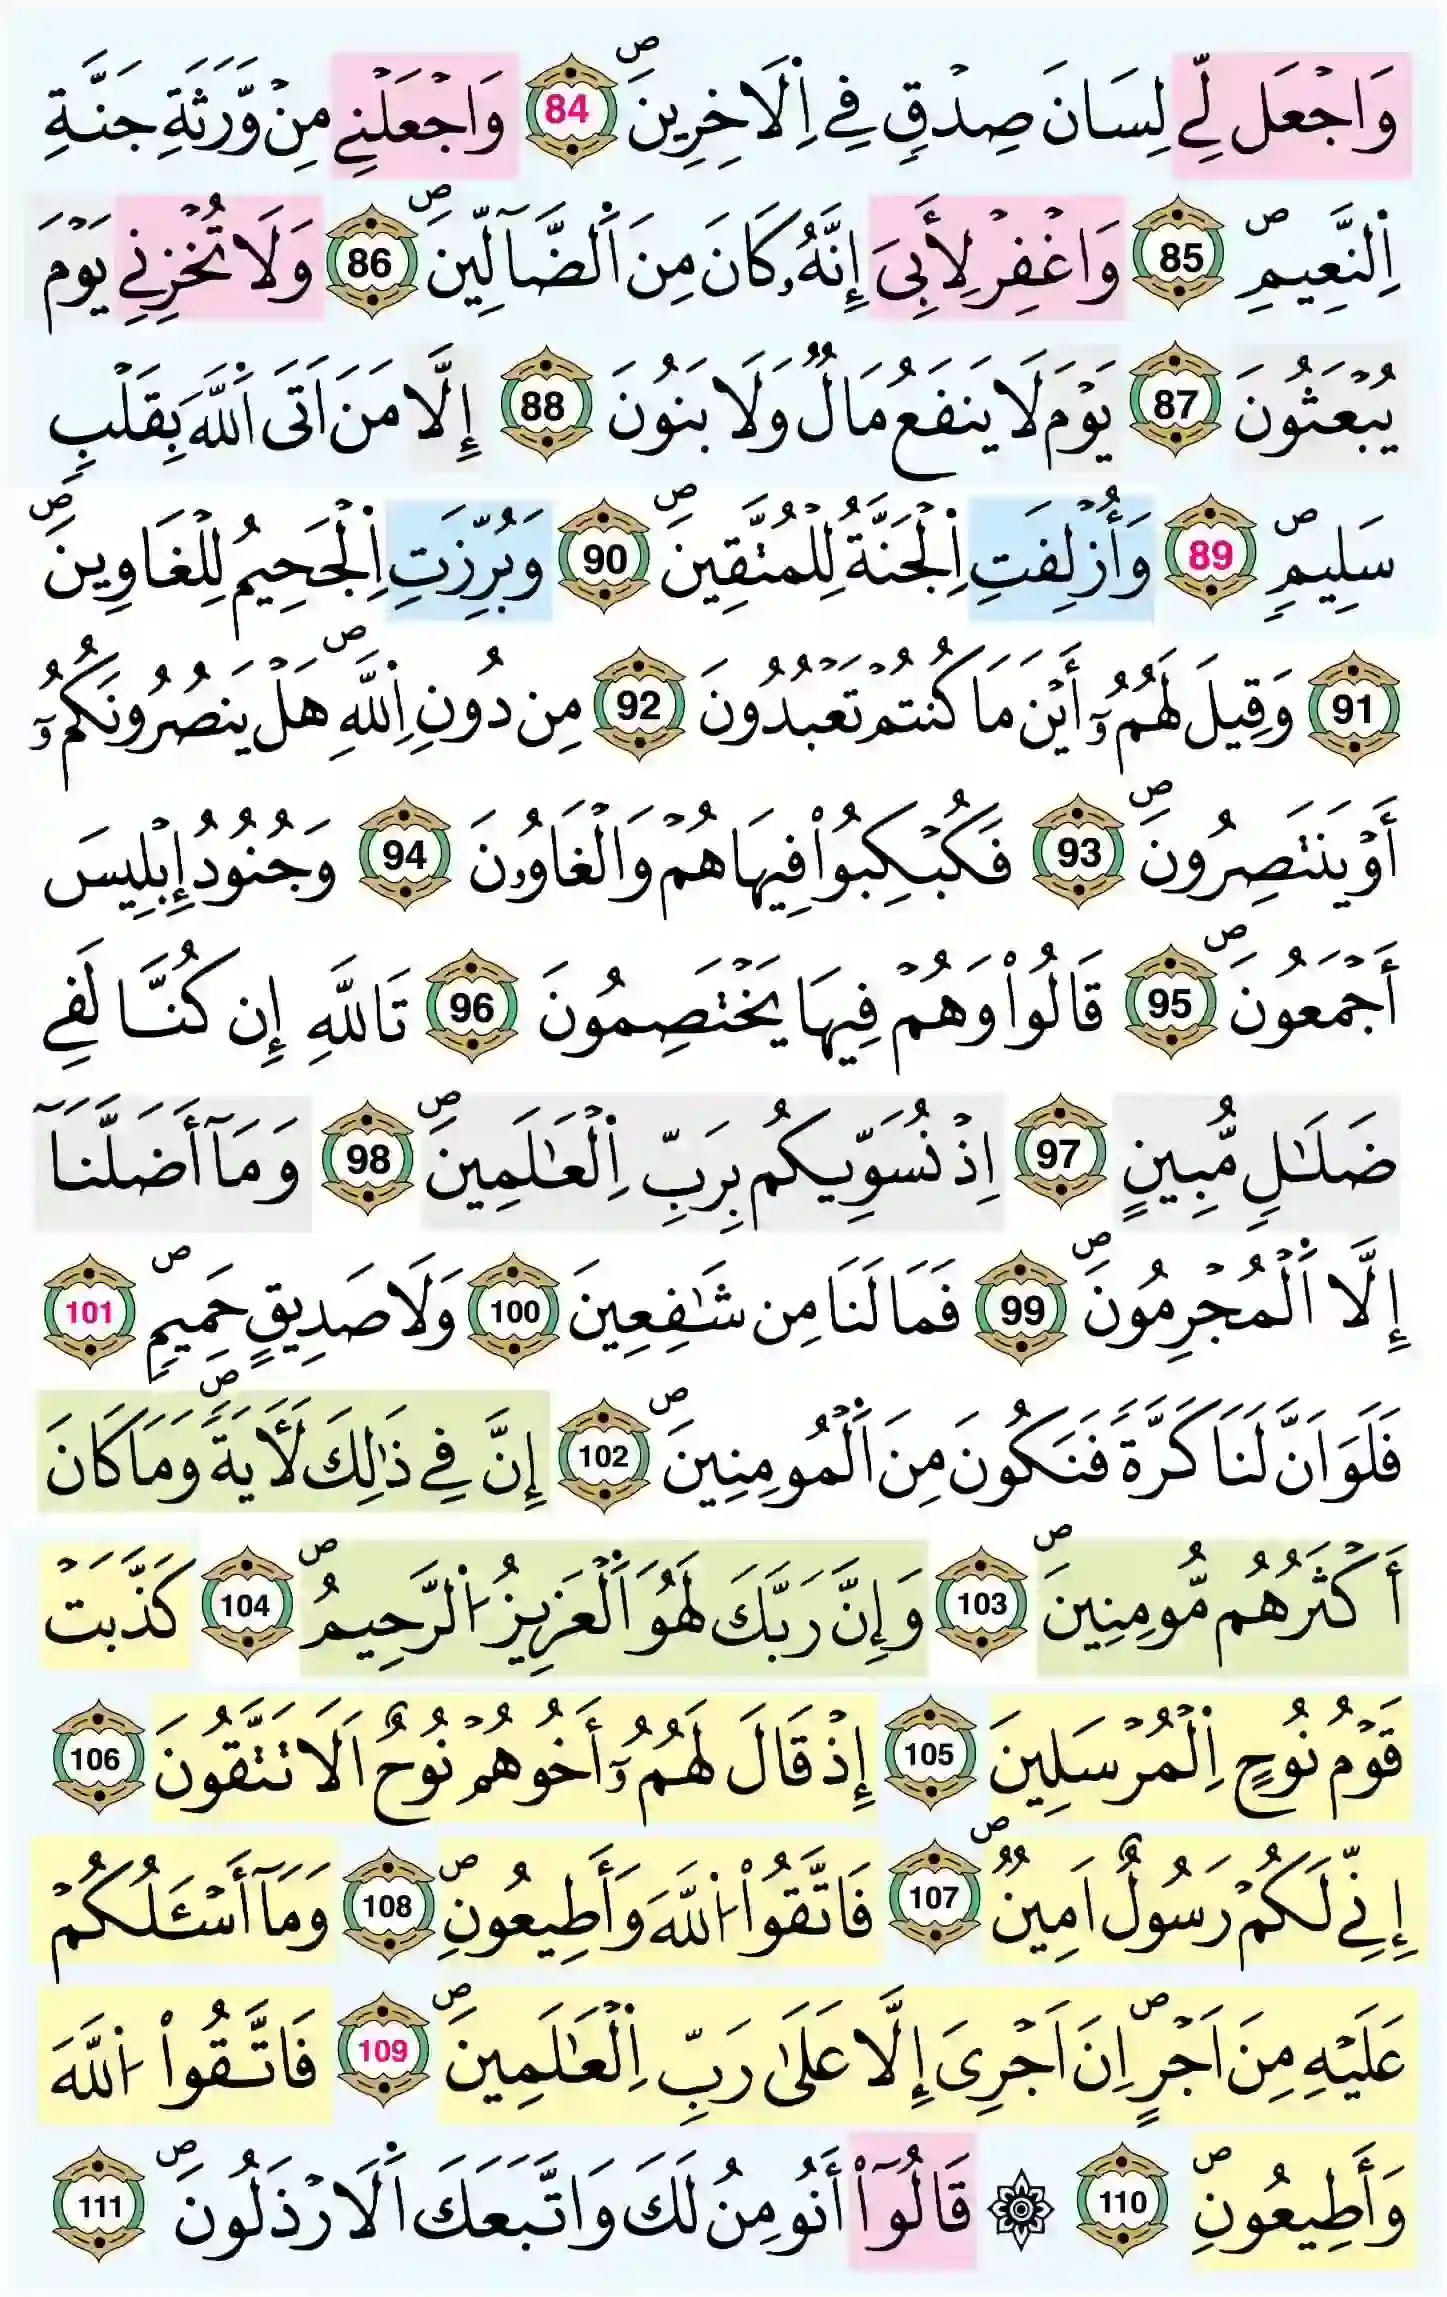 وَاجْعَل لِّے لِسَانَ صِدْقٖ فِے اِ۬لَاخِرِينَۖ 84 وَاجْعَلْنِے مِنْ وَّرَثَةِ جَنَّةِ
اِ۬لنَّعِيمِۖ 85 وَاغْفِرْ لِأَبِىَ إِنَّهُۥ كَانَ مِنَ اَ۬لضَّآلِّينَۖ 86 وَلَا تُخْزِنِے يَوْمَ
يُبْعَثُونَ 87 يَوْمَ لَا يَنفَعُ مَالٞ وَلَا بَنُونَ 88 إِلَّا مَنَ اَتَى اَ۬للَّهَ بِقَلْبٖ
سَلِيمٖۖ 89 وَأُزْلِفَتِ اِ۬لْجَنَّةُ لِلْمُتَّقِينَۖ 90 وَبُرِّزَتِ اِ۬لْجَحِيمُ لِلْغَاوِينَۖ
91 وَقِيلَ لَهُمُۥٓ أَيْنَ مَا كُنتُمْ تَعْبُدُونَ 92 مِن دُونِ اِ۬للَّهِۖ هَلْ يَنصُرُونَكُمُۥٓ
أَوْ يَنتَصِرُونَۖ 93 فَكُبْكِبُواْ فِيهَا هُمْ وَالْغَاوُۥنَ 94 وَجُنُودُ إِبْلِيسَ
أَجْمَعُونَۖ 95 قَالُواْ وَهُمْ فِيهَا يَخْتَصِمُونَ 96 تَاللَّهِ إِن كُنَّا لَفِے
ضَلَٰلٖ مُّبِينٍ 97 اِذْ نُسَوِّيكُم بِرَبِّ اِ۬لْعَٰلَمِينَۖ 98 وَمَآ أَضَلَّنَآ
إِلَّا اَ۬لْمُجْرِمُونَۖ 99 فَمَا لَنَا مِن شَٰفِعِينَ 100 وَلَا صَدِيقٍ حَمِيمٖۖ 101
فَلَوَ اَنَّ لَنَا كَرَّةٗ فَنَكُونَ مِنَ اَ۬لْمُومِنِينَۖ 102 إِنَّ فِے ذَٰلِكَ لَأٓيَةٗۖ وَمَا كَانَ
أَكْثَرُهُم مُّومِنِينَۖ 103 وَإِنَّ رَبَّكَ لَهُوَ اَ۬لْعَزِيزُ اُ۬لرَّحِيمُۖ 104 كَذَّبَتْ
قَوْمُ نُوحٍ اِ۬لْمُرْسَلِينَ 105 إِذْ قَالَ لَهُمُۥٓ أَخُوهُمْ نُوحٌ اَلَا تَتَّقُونَ 106
إِنِّے لَكُمْ رَسُولٌ اَمِينٞۖ 107 فَاتَّقُواْ اُ۬للَّهَ وَأَطِيعُونِۖ 108 وَمَآ أَسْـَٔلُكُمْ
عَلَيْهِ مِنَ اَجْرٍۖ اِنَ اَجْرِىَ إِلَّا عَلَىٰ رَبِّ اِ۬لْعَٰلَمِينَۖ 109 فَاتَّقُواْ اُ۬للَّهَ
وَأَطِيعُونِۖ 110 ۞ قَالُوٓاْ أَنُومِنُ لَكَ وَاتَّبَعَكَ اَ۬لَارْذَلُونَۖ 111